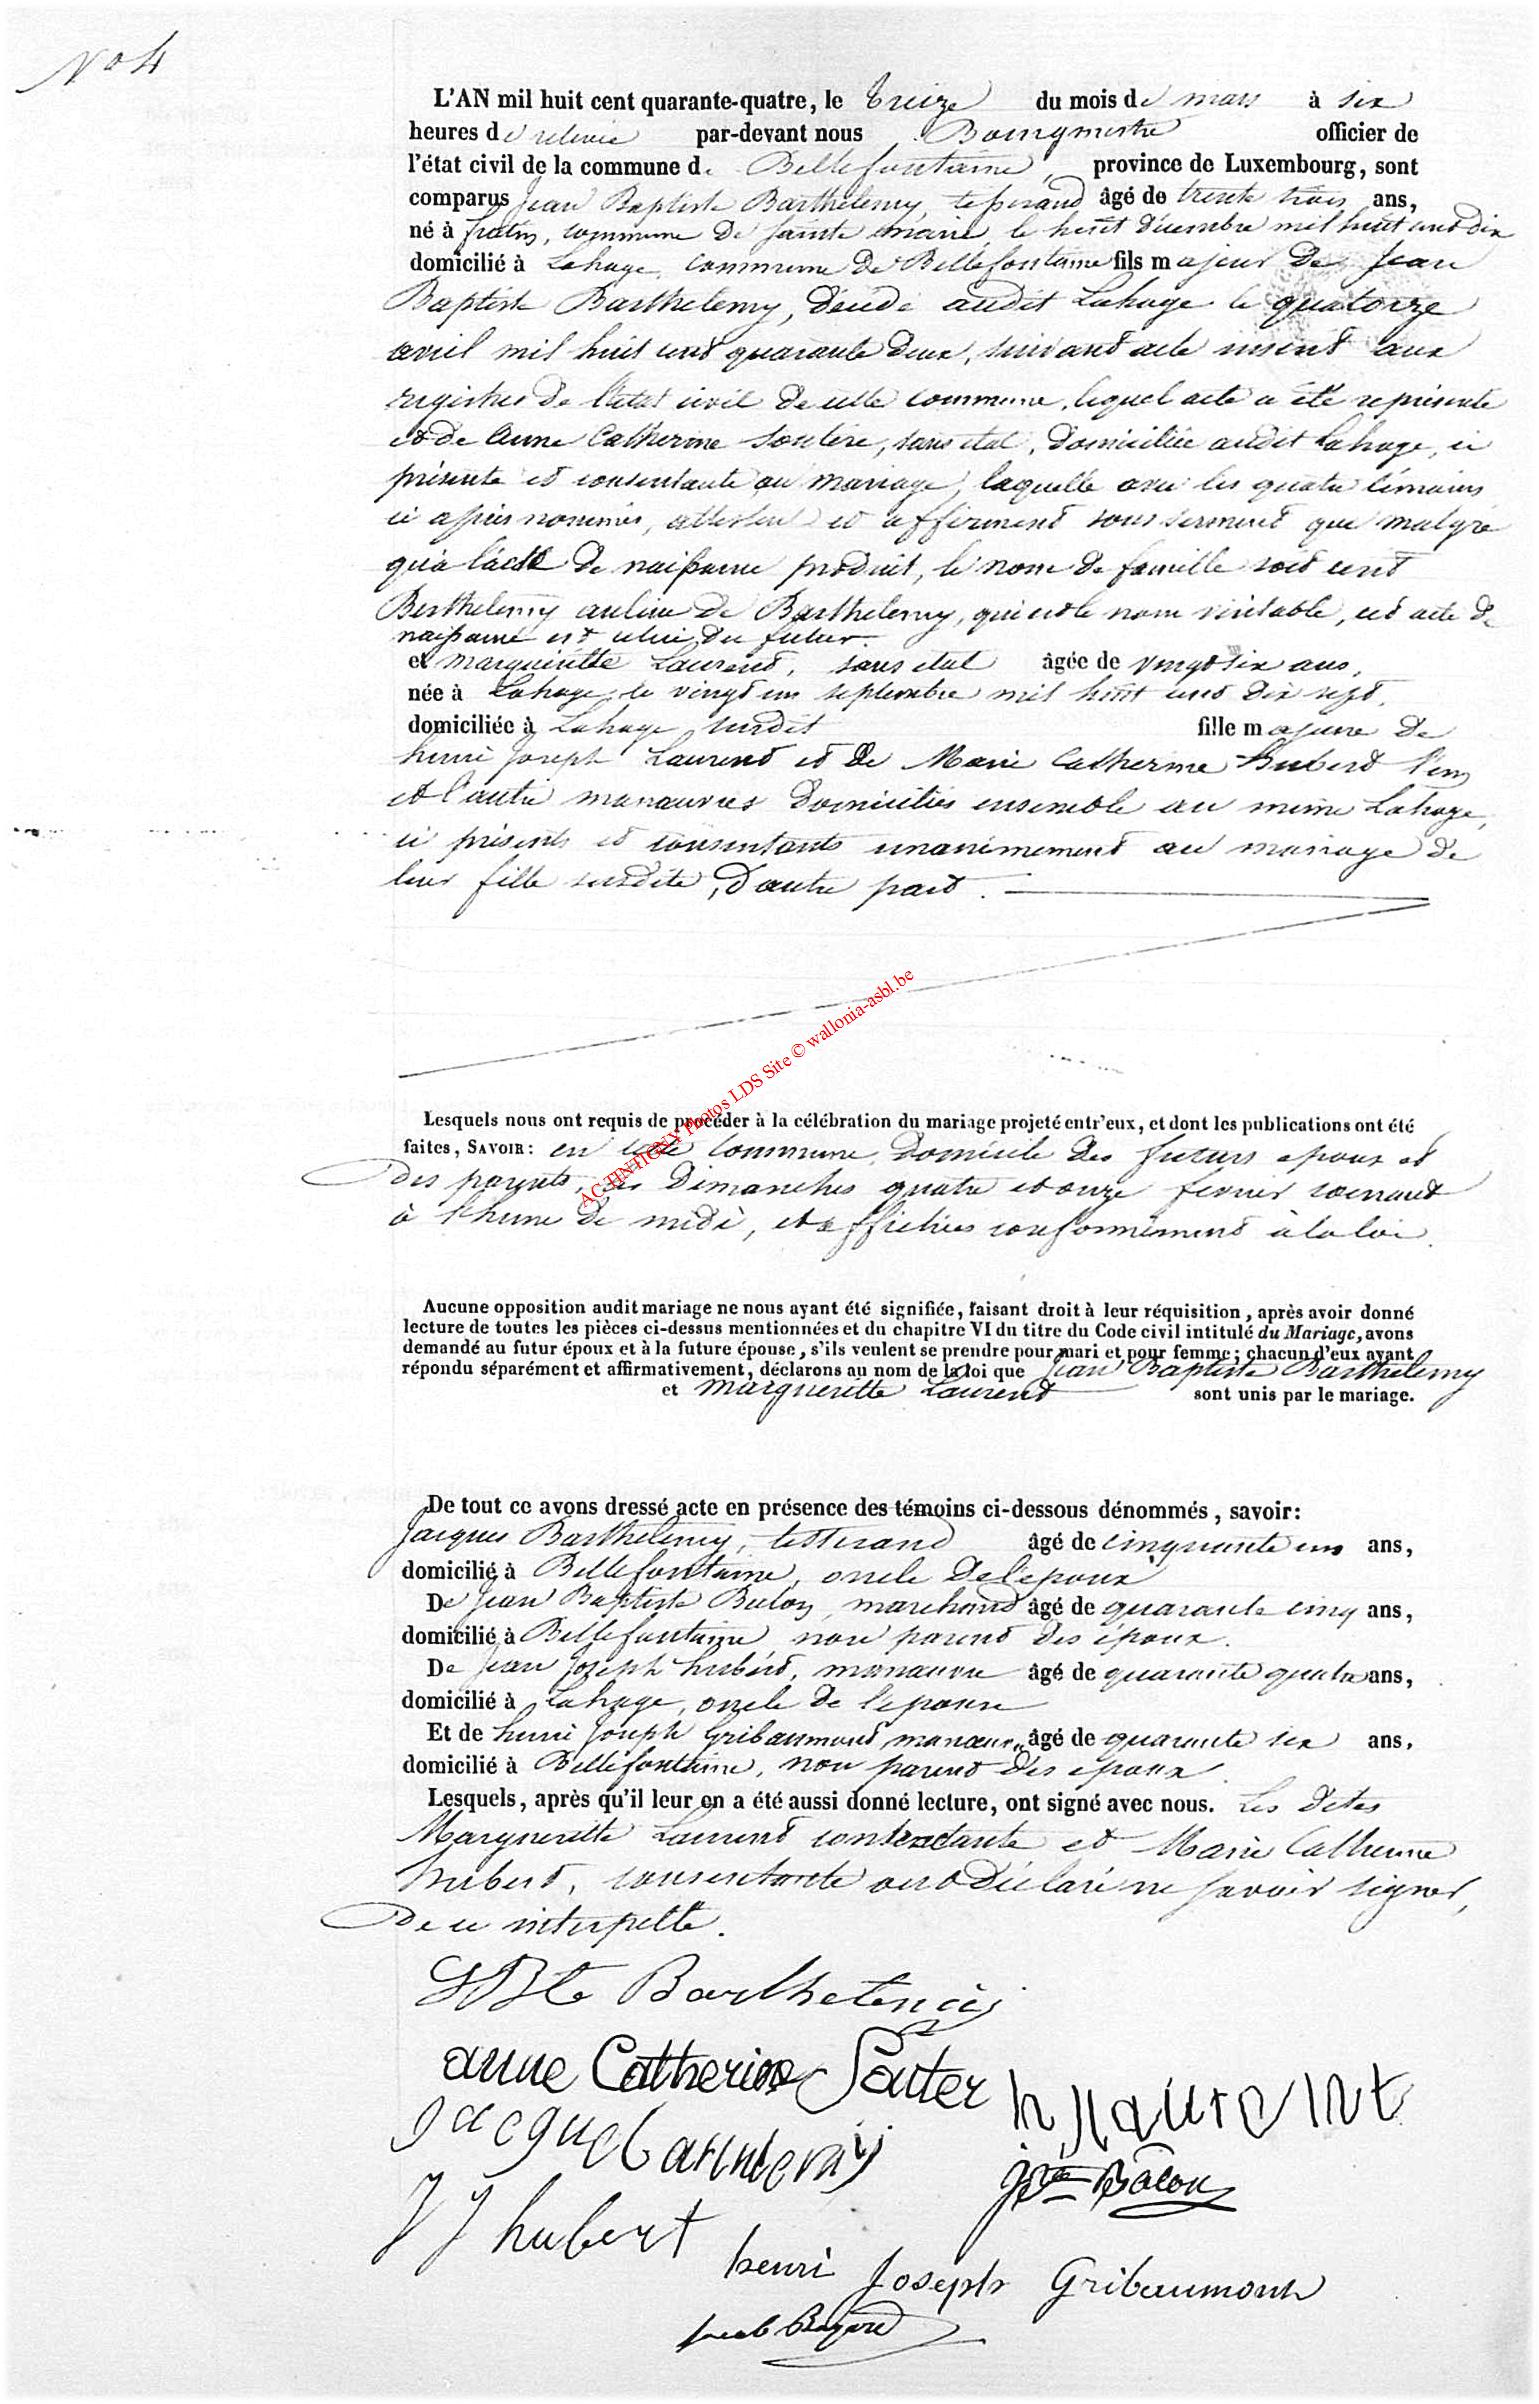 No 4
L'AN mil huit cent quarante-quatre, le treize du mois de mars à six
heures de relevée par-devant nous Bourgmestre officier de
l'état civil de la commune de Bellefontaine, province de Luxembourg, sont
comparus Jean Baptiste Barthelemy, tisserand âgé de trente trois ans,
né à fratin, commune de Sainte marie, le huit décembre mil huit cent dix
domicilié à Lahage, commune de Bellefontaine fils majeur de Jean
Baptiste Barthelemy, décédé audit Lahage le quatorze
avril mil huit cent quarante deux, suivant acte inscrit aux
registres de l'état civil de cette commune, lequel acte a été représenté
et de Anne Catherine Soutere, sans etat, domiciliée audit Lahage, ci
présente et consentante au mariage, laquelle avec les quatre témoins
ci après nommés, attestent et affirment sous serment que malgré
qu'à l'acte de naissance produit, le nom de famille soit écrit
Berthelemy au lieu de Barthelemy, qui est le nom véritable, cet acte de
naissance est celui du futur.
et margueritte Laurent, sans etat âgée de vingt six ans,
née à Lahage, le vingt un septembre mil huit cent dix sept,
domiciliée à Lahage susdit fille majeure de
henri Joseph Laurent et de Marie Catherine Hubert l'un
et l'autre manœuvres domiciliés ensemble au même Lahage,
ci présents et consentants unanimement au mariage de
leur fille susdite, d'autre part.
AC TINTIGNY Photos LDS Site © wallonia-asbl.be
Lesquels nous ont requis de procéder à la célébration du mariage projeté entr'eux, et dont les publications ont été
faites, SAVOIR: en cette commune, domicile des futurs epoux et
des parents, les dimanches quatre et onze fevrier courant
à l'heure de midi, et affichées conformément à la loi.
Aucune opposition audit mariage ne nous ayant été signifiée, faisant droit à leur réquisition, après avoir donné
lecture de toutes les pièces ci-dessus mentionnées et du chapitre VI du titre du Code civil intitulé du Mariage, avons
demandé au futur époux et à la future épouse, s'ils veulent se prendre pour mari et pour femme; chacun d'eux ayant
répondu séparément et affirmativement, déclarons au nom de la loi que Jean Baptiste Barthelemy
et margueritte Laurent sont unis par le mariage.
De tout ce avons dressé acte en présence des témoins ci-dessous dénommés, savoir:
Jacques Barthelemy, tisserand âgé de cinquante un ans,
domicilié à Bellefontaine, oncle de l'epoux
De Jean Baptiste Bulon, marchand âgé de quarante cinq ans,
domicilié à Bellefontaine non parent des époux.
De Jean Joseph hubert, manœuvre âgé de quarante quatre ans,
domicilié à Lahage, oncle de l'epouse
Et de henri Joseph Gribaumont, manœuv. âgé de quarante six ans,
domicilié à Bellefontaine, non parent des epoux.
Lesquels, après qu'il leur en a été aussi donné lecture, ont signé avec nous. Les dites
Marguerette Laurent contractante et Marie Catherine
hubert, consentante ont déclaré ne savoir signer,
de ce interpellé.
JBte Barthelemij
anne Catherine Souter
h j laurent
jacque barthlemij
JBte Bulon
J J hubert
henri Joseph Gribaumont